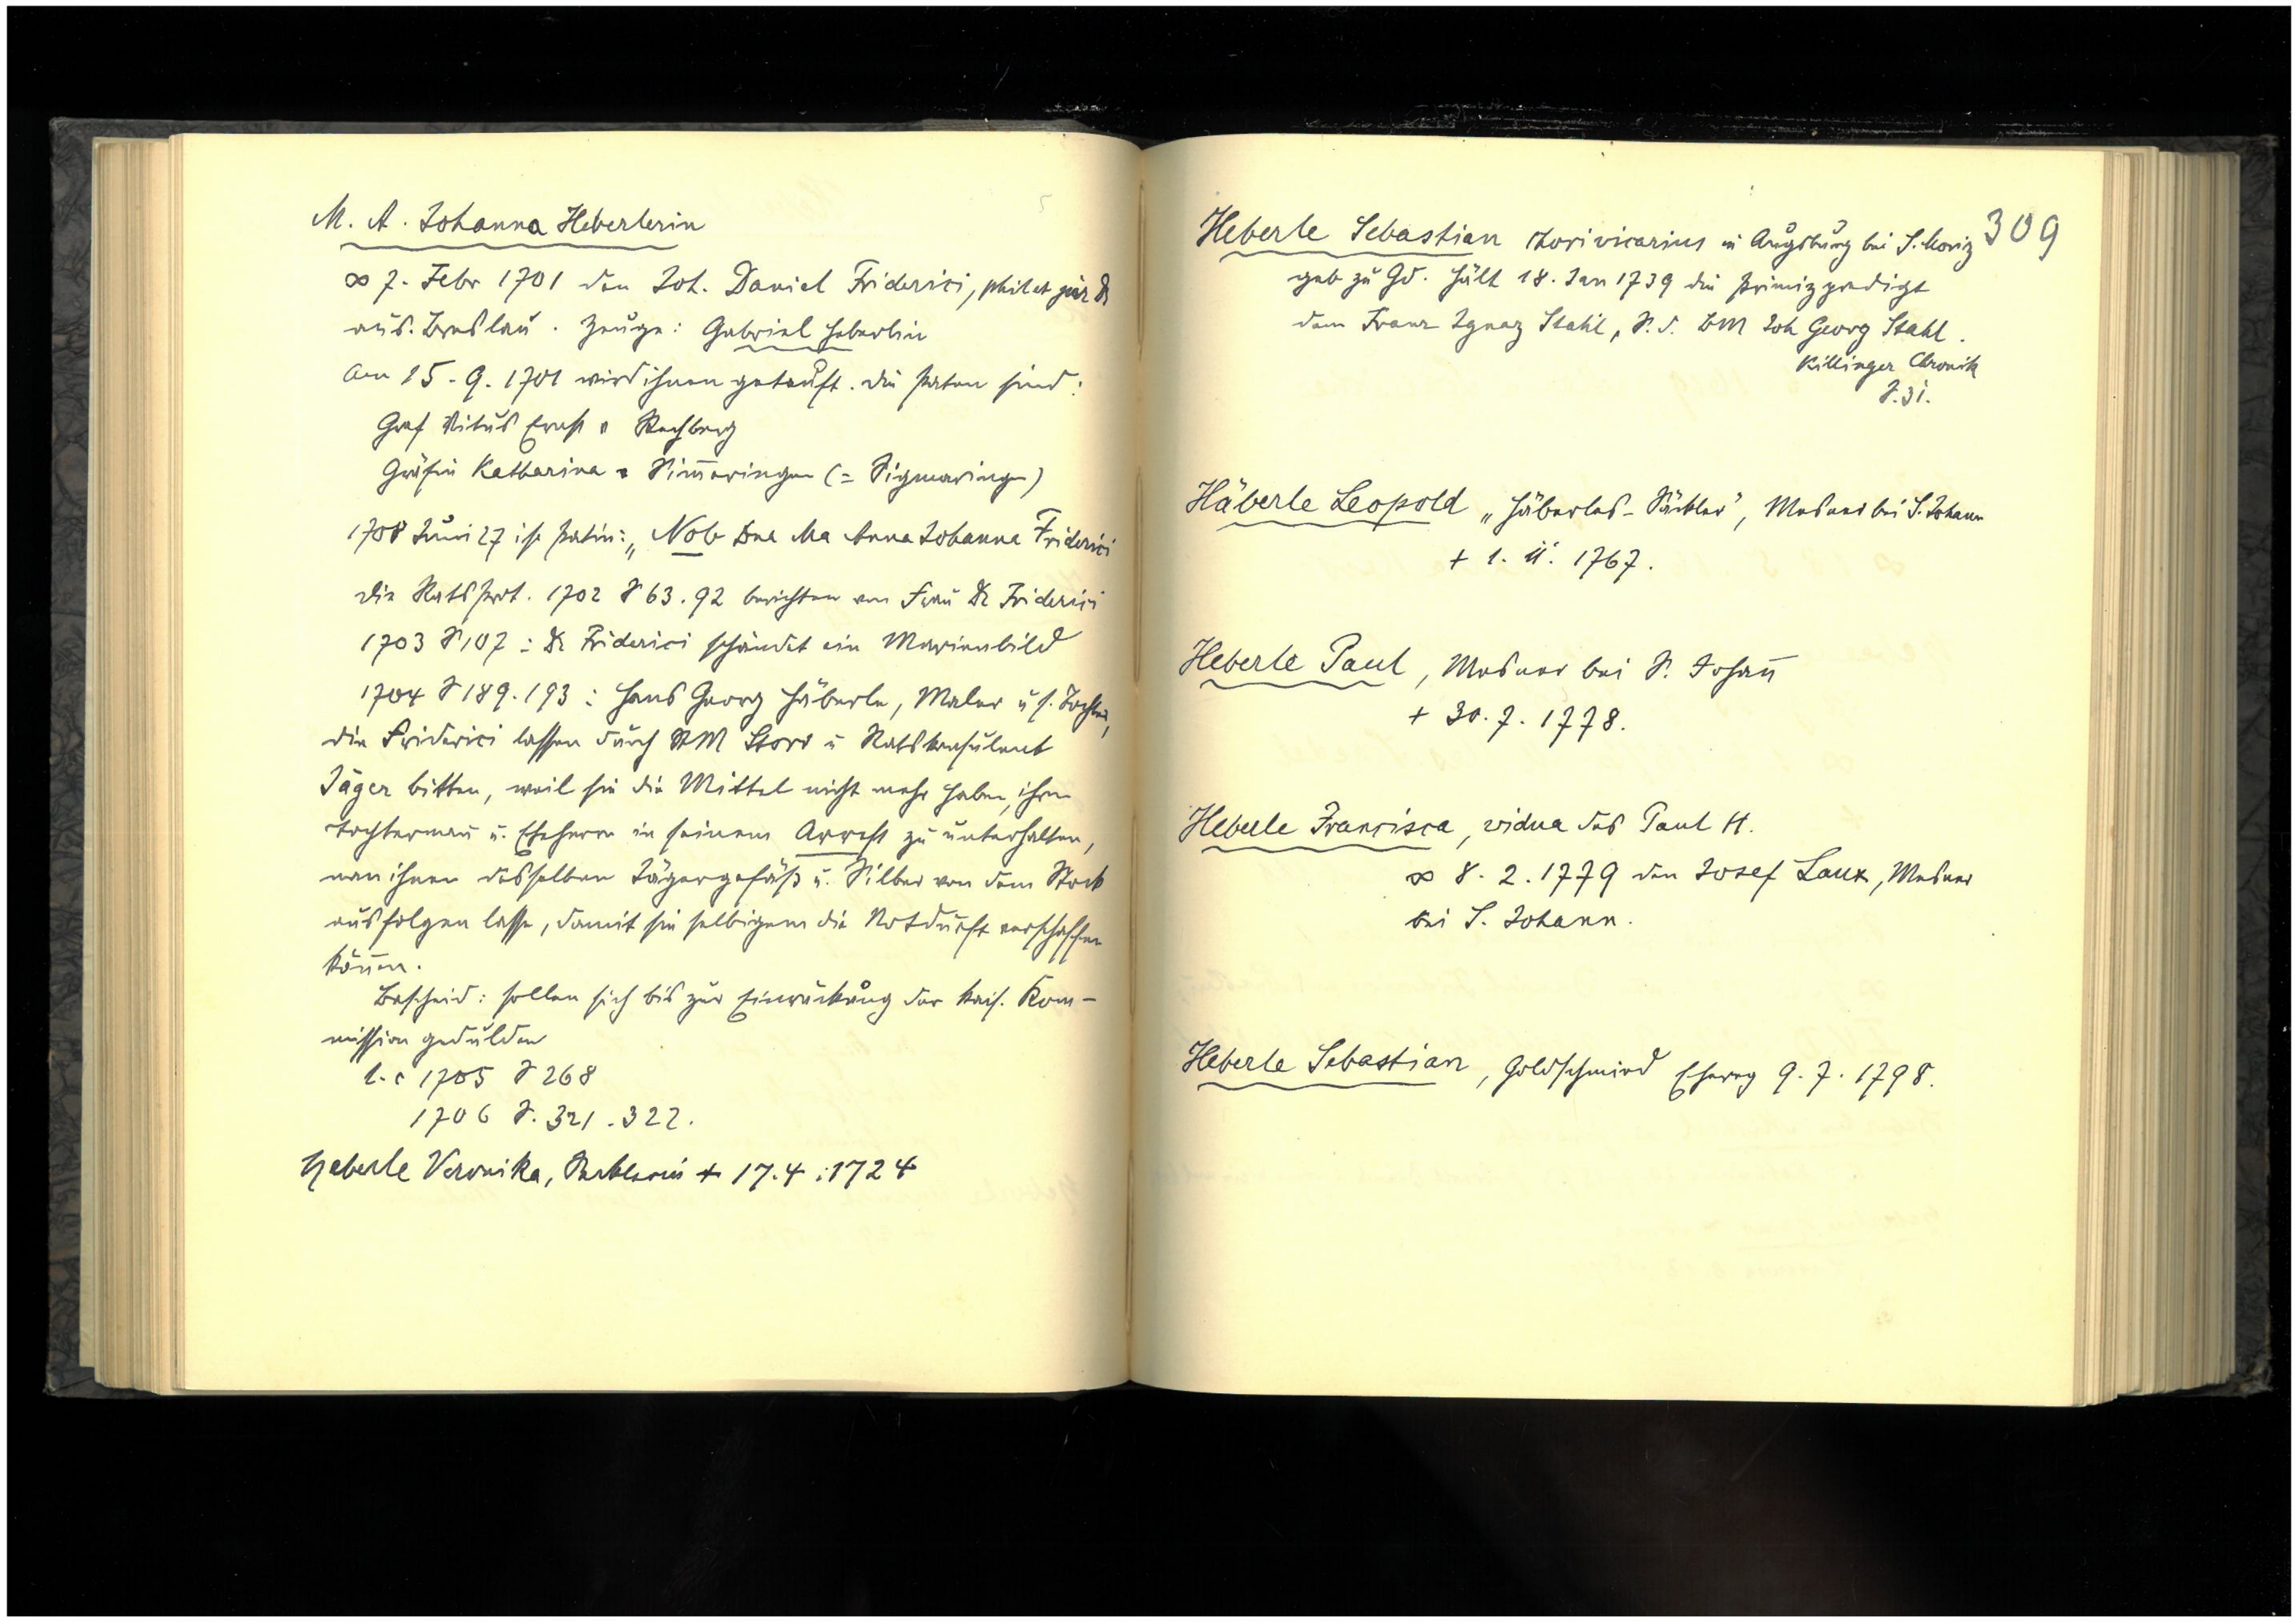 M. A. Johanna Heberlerin
∞ 7. Febr 1701 den Joh. Daniel Friderici, phil et jur Dr
aus. Breslau. Zeuge: Gabriel Heberlin
Am 15. 9. 1701 wird ihnen getauft. Die Paten sind:
Graf Vitus Ernst v Rechberg
Gräfin Katharina v Sim̄eringen (= Sigmaringen)
1708 Juni 27 ist Patin: „Nob Dna Ma Anna Johanna Friderici
Die Rats Prot. 1702 S 63. 92 berichten von Frau Dr Friderici
1703 S 107: Dr Friderici schändet ein Marienbild
1704 S 189. 193: Hans Georg Häberle, Maler u s. Tochter,
die Friderici lassen durch BM Storr u Ratskonsulent
Jäger bitten, weil sie die Mittel nicht mehr haben, ihren
Tochterman̄ u. Eheherrn in seinem Arrest zu unterhalten,
man ihnen desselben Jägergefäß u. Silber von dem Stock
ausfolgen lasse, damit sie selbigem die Notdurft verschaffen
kön̄en.
Bescheid: sollen sich bis zur Einrückung der kais. Kom-
mission gedulden
l. c 1705 S 268
1706 S. 321. 322.
Heberle Veronika, + 17. 4. 1724
309
Heberle Sebastian Chorivicarius in Augsburg bei S. Moriz
geb zu Gd. hält 18. Jan 1739 die Primizpredigt
dem Franz Ignaz Stahl, S. d. BM Joh Georg Stahl.
Killinger Chronik
S. 31.
Häberle Leopold „Häberles-Säckler", Mesner bei S. Johann
+ 1. 11. 1767.
Heberle Paul, Mesner bei S. Johan̄
+ 30. 7. 1778.
Heberle Francisca, vidua des Paul H.
∞ 8. 2. 1779 den Josef Laux, Mesner
bei S. Johann.
Heberle Sebastian, Goldschmied Eheweg 9. 7. 1798.